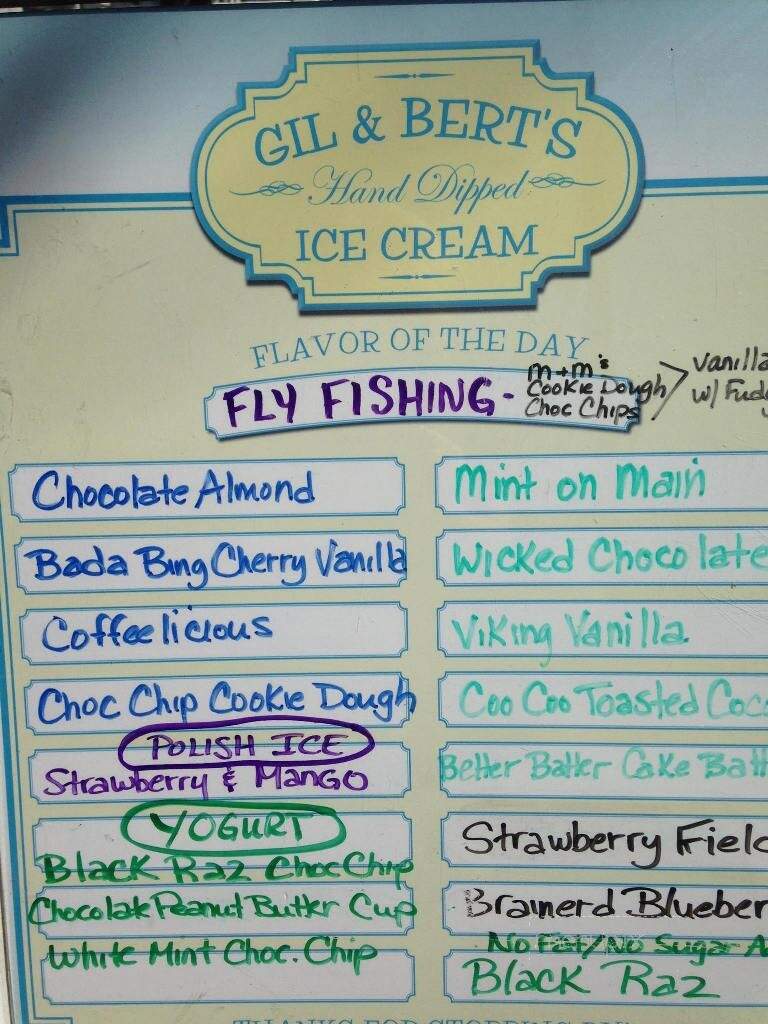 GIL & BERT'S
Hand Dipped
ICE CREAM
FLAVOR OF THE DAY
FLY FISHING - M+M's Cookie Dough Choc Chips
Vanilla
w/ Fud
Chocolate Almond
Bada Bing Cherry Vanilla
Coffeelicious
Choc Chip Cookie Dough
POLISH ICE
Strawberry & MANGO
YOGURT
Black Raz Choc Chip
Chocolate Peanut Butter Cup
White Mint Choc. Chip
Mint on Main
Wicked Chocolate
Viking Vanilla
Coo Coo Toasted Coc
Better Batter Cake Batt
Strawberry Field
Brainerd Blueber
No Fat/No Sugar A
Black Raz
THANKS FOR STOPPING BY!